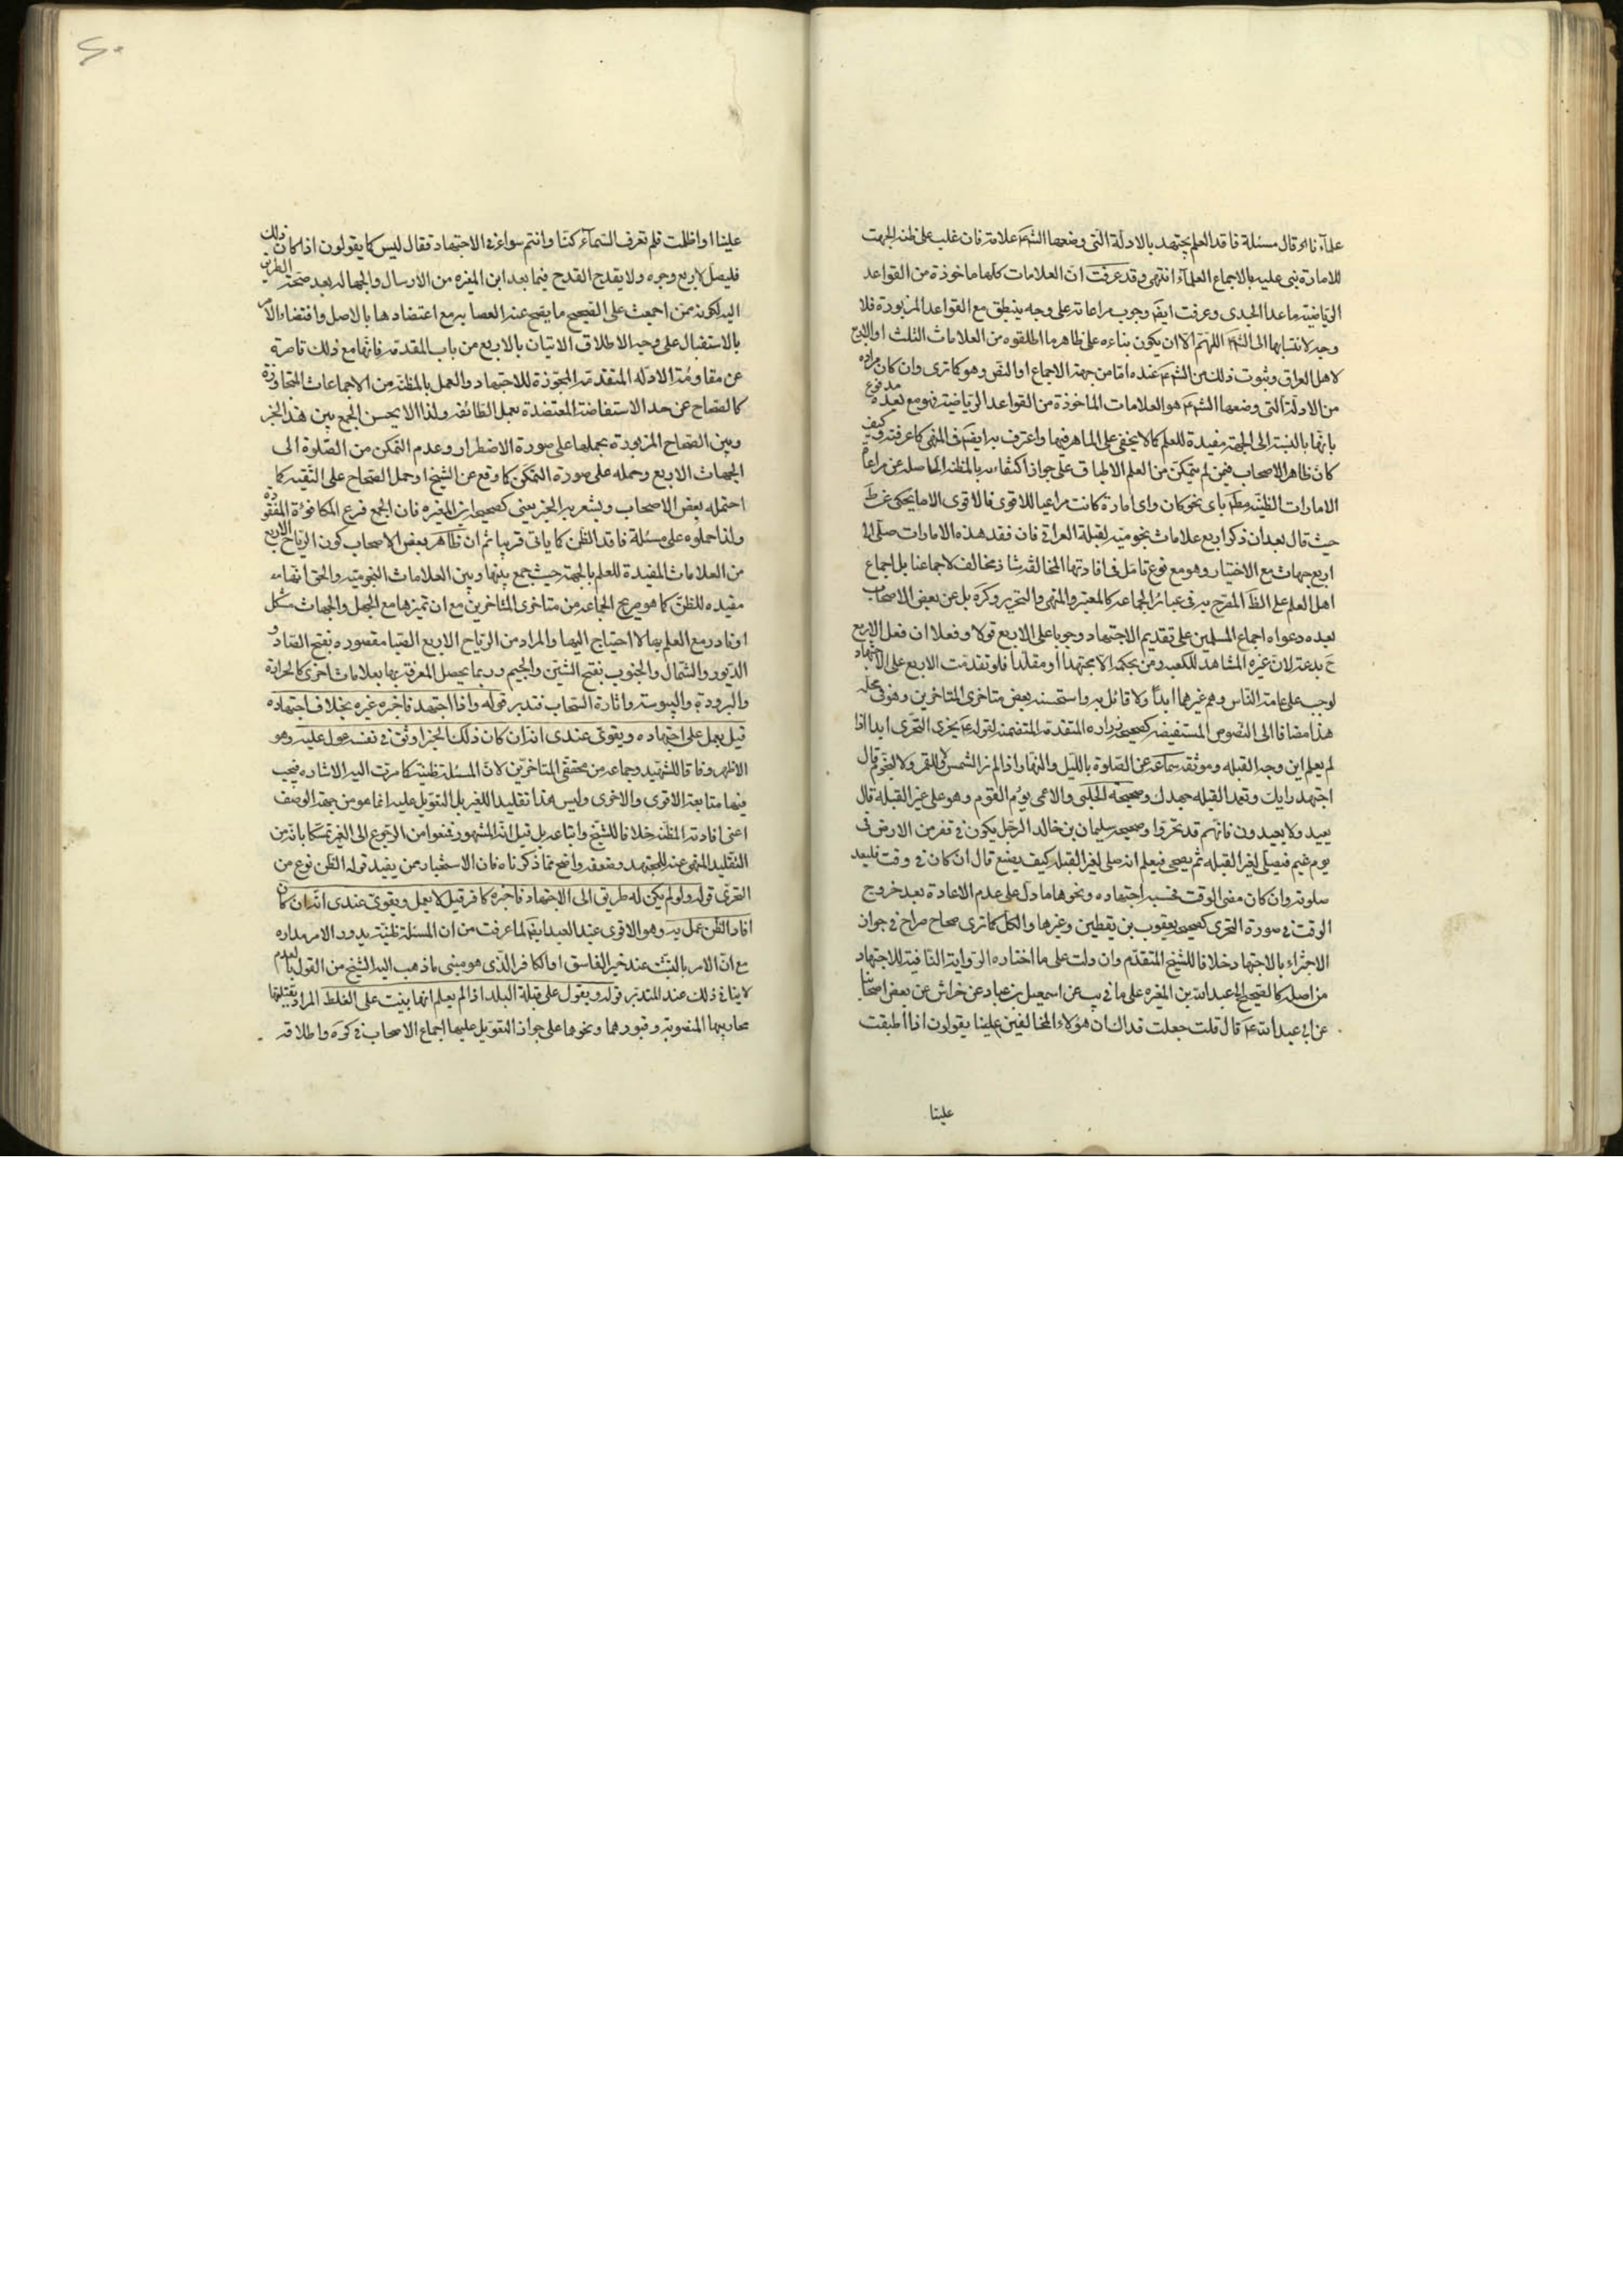 علمآءنا او قال مسئلة فاقد العلم يجتهد بالادلة التى وضعها الشم علامة فان غلب على ظنه الجهت
للامارة بنى عليه بالاجماع العلمآء انتهى وقد عرفت ان العلامات كلها ماخوذة من القواعد
الرياضيه ماعدا الجدى وعرفت ايضَ وجوب مراعاته على وجه ينطبق مع القواعد المزبورة فلا
وجه لانتسابها الى الشم اللهم الا ان يكون بناءه على ظاهر ما اطلقوه من العلامات الثلث او الاربع
لاهل العراق وثبوت ذلك من الشم عنده اما من جهة الاجماع او النص وهو كما ترى وان كان مراده
من الادلة التى وضعها الشم هو العلامات الماخوذة من القواعد الرياضيه فهو مع بعده مدفوع
بانها بالنسبة الى الجهة مفيدة للعلم كما لا يخفى على الماهر فيها واعترف به ايضَ فى المنهى كما عرفته وكيف
كان ظاهر الاصحاب فيمن لم يتمكن من العلم الاطباق على جواز اكتفاءه بالمظنه الحاصله عن مراعاة
الامارات الظنيه مطَ باى نحو كان واى امارة كانت مراعيا للاقوى فالاقوى الا ما يحكى عن طَ
حيث قال بعد ان ذكر اربع علامات نجوميه لقبلة العراق فان فقد هذه الامارات صلى الى
اربع جهات مع الاختيار وهو مع نوع تامل فى افادتها المخالفة شاذ مخالف لاجماعنا بل اجماع
اهل العلم على الظَ المصرح به فى عبائر الجماعه كالمعتبر والمنهى والتحرير وكره بل عن بعض الاصحاب
بعده دعواه اجماع المسلمين على تقديم الاجتهاد وجوبا على الاربع قولا وفعلا ان فعل الاربع
حَ بدعة لان غيره المشاهد للكعبه ومن بحكمه الا مجتهدا او مقلدا فلو تقدمت الاربع على الاجتهاد
لوجب على عامة الناس وهم غيرهما ابدًا ولا قائل به واستحسنه بعض متاخرى المتاخرين وهو فى محله
هذا مضافا الى النصوص المستفيضه كصحيحه زراره المتقدمة المتضمنة لقوله عَ يجزى التحرى ابدا اذا
لم يعلم اين وجه القبله وموثقه سماعه عن الصلوة بالليل والنهار اذا لم نر الشمس ولا القمر ولا النجوم قال
اجتهد رايك وتعمد القبله جهدك وصحيحه الحلبى والاعمى يؤم القوم وهو على غير القبلة قال
يعيد ولا يعيدون فانهم قد تحروا وصحيحه سليمان بن خالد الرجل يكون فى قفر من الارض فى
يوم غيم فيصلى لغير القبله ثم يصحى فيعلم انه صلى لغير القبله كيف يصنع قال ان كان فى وقت فليعد
صلوته وان كان مضى الوقت فحسبه اجتهاده ونحوها ما دل على عدم الاعادة بعد خروج
الوقت فى صورة التحرى كصحيحه يعقوب بن يقطين وغيرها والكل كما ترى صحاح صراح فى جواز
الاجتزاء بالاجتهاد خلافا للشيخ المتقدم وان دلت على ما اختاره الرواية النافية للاجتهاد
من اصله كالصحيح الى عبد الله بن المغيره على ما فى يب عن اسمعيل بن عباد عن خراش عن بعض اصحابنا
عن ابى عبد الله عَ قال قلت جعلت فداك ان هؤلاء المخالفين علينا يقولون اذا اطبقت
علينا
علينا او اظلمت فلم تعرف السمآء كنا وانتم سواء فى الاجتهاد فقال ليس كما يقولون اذا كان ذلك
فليصل لاربع وجوه ولا يقدح القدح فيما بعد ابن المغيره من الارسال والجهاله بعد صحة الطريق
اليه لكونه ممن اجمعت على تصحيح ما يصح عنه العصابه مع اعتضادها بالاصل واقتضاء الامر
بالاستقبال على وجه الاطلاق الاتيان بالاربع من باب المقدمه فانها مع ذلك قاصرة
عن مقاومة الادله المتقدمة المجوزة للاجتهاد والعمل بالمظنه من الاجماعات المتجاوزة
كالصحاح عن حد الاستفاضة المعتضدة بعمل الطائفه ولذا لا يحسن الجمع بين هذا الخبر
وبين الصحاح المزبورة بحملها على صورة الاضطرار وعدم التمكن من الصلوة الى
الجهات الاربع وحمله على صورة التمكن كما وقع عن الشيخ او حمل الصحاح على التقيه كما
احتمله بعض الاصحاب ويشعر به الخبر يعنى كصحيح ابن المغيره فان الجمع فرع المكافوة المفقودة
ولذا حملوه على مسئلة فاقد الظن كما ياتى قريبا ثم ان ظاهر بعض الاصحاب كون الرياح الاربع
من العلامات المفيدة للعلم بالجهة حيث جمع بينها وبين العلامات النجوميه والحق انها
مفيده للظن كما هو صريح الجماعه من متاخرى المتاخرين مع ان تميزها مع الجهل والجهات مشكل
او نادر مع العلم بها لا احتياج اليها والمراد من الرياح الاربع الصبا مقصوره بفتح الصاد و
الدبور والشمال والجنوب بفتح الشين والجيم وربما يحصل المعرفة بها بعلامات اخرى كالحرارة
والبرودة واليبوسة واثارة السحاب فتدبر قوله واذا اجتهد فاخبره غيره بخلاف اجتهاده
قيل يعمل على اجتهاده ويقوى عندى انه ان كان ذلك الخبر اوثق فى نفسه عول عليه وهو
الاظهر وفاقا للشهيد وجماعه من محققى المتاخرين لان المسئلة ظنيه كما مرت اليه الاشاره فيجب
فيها متابعة الاقوى والاحرى وليس هذا تقليدا للغير بل التعويل عليه انما هو من جهة الوصف
اعنى افادته المظنه خلافا للشيخ واتباعه بل قيل انه المشهور فمنعوا من الرجوع الى الغير تمسكا بانه من
التقليد المنهى عنه للمجتهد وضعفه واضح مما ذكرناه فان الاستخبار ممن يفيد قوله الظن نوع من
التحرى قوله ولو لم يكن له طريق الى الاجتهاد فاخبره كافر قيل لا يعمل ويقوى عندى انه ان كان
افاد الظن عمل به وهو الاقوى عند العبد ايضَ لما عرفت من ان المسئلة ظنية يدور الامر مداره
مع ان الامر بالتثبت عند خبر الفاسق او الكافر الذى هو مبنى ما ذهب اليه الشيخ من القول بالعدم
لا ينافى ذلك عند المتدبر قوله ويعول على قبلة البلد اذا لم يعلم انها بنيت على الغلط المراد بقبلتها
محاريبها المنصوبة وقبورها ونحوها على جواز التعويل عليها اجماع الاصحاب فى كره واطلاقه